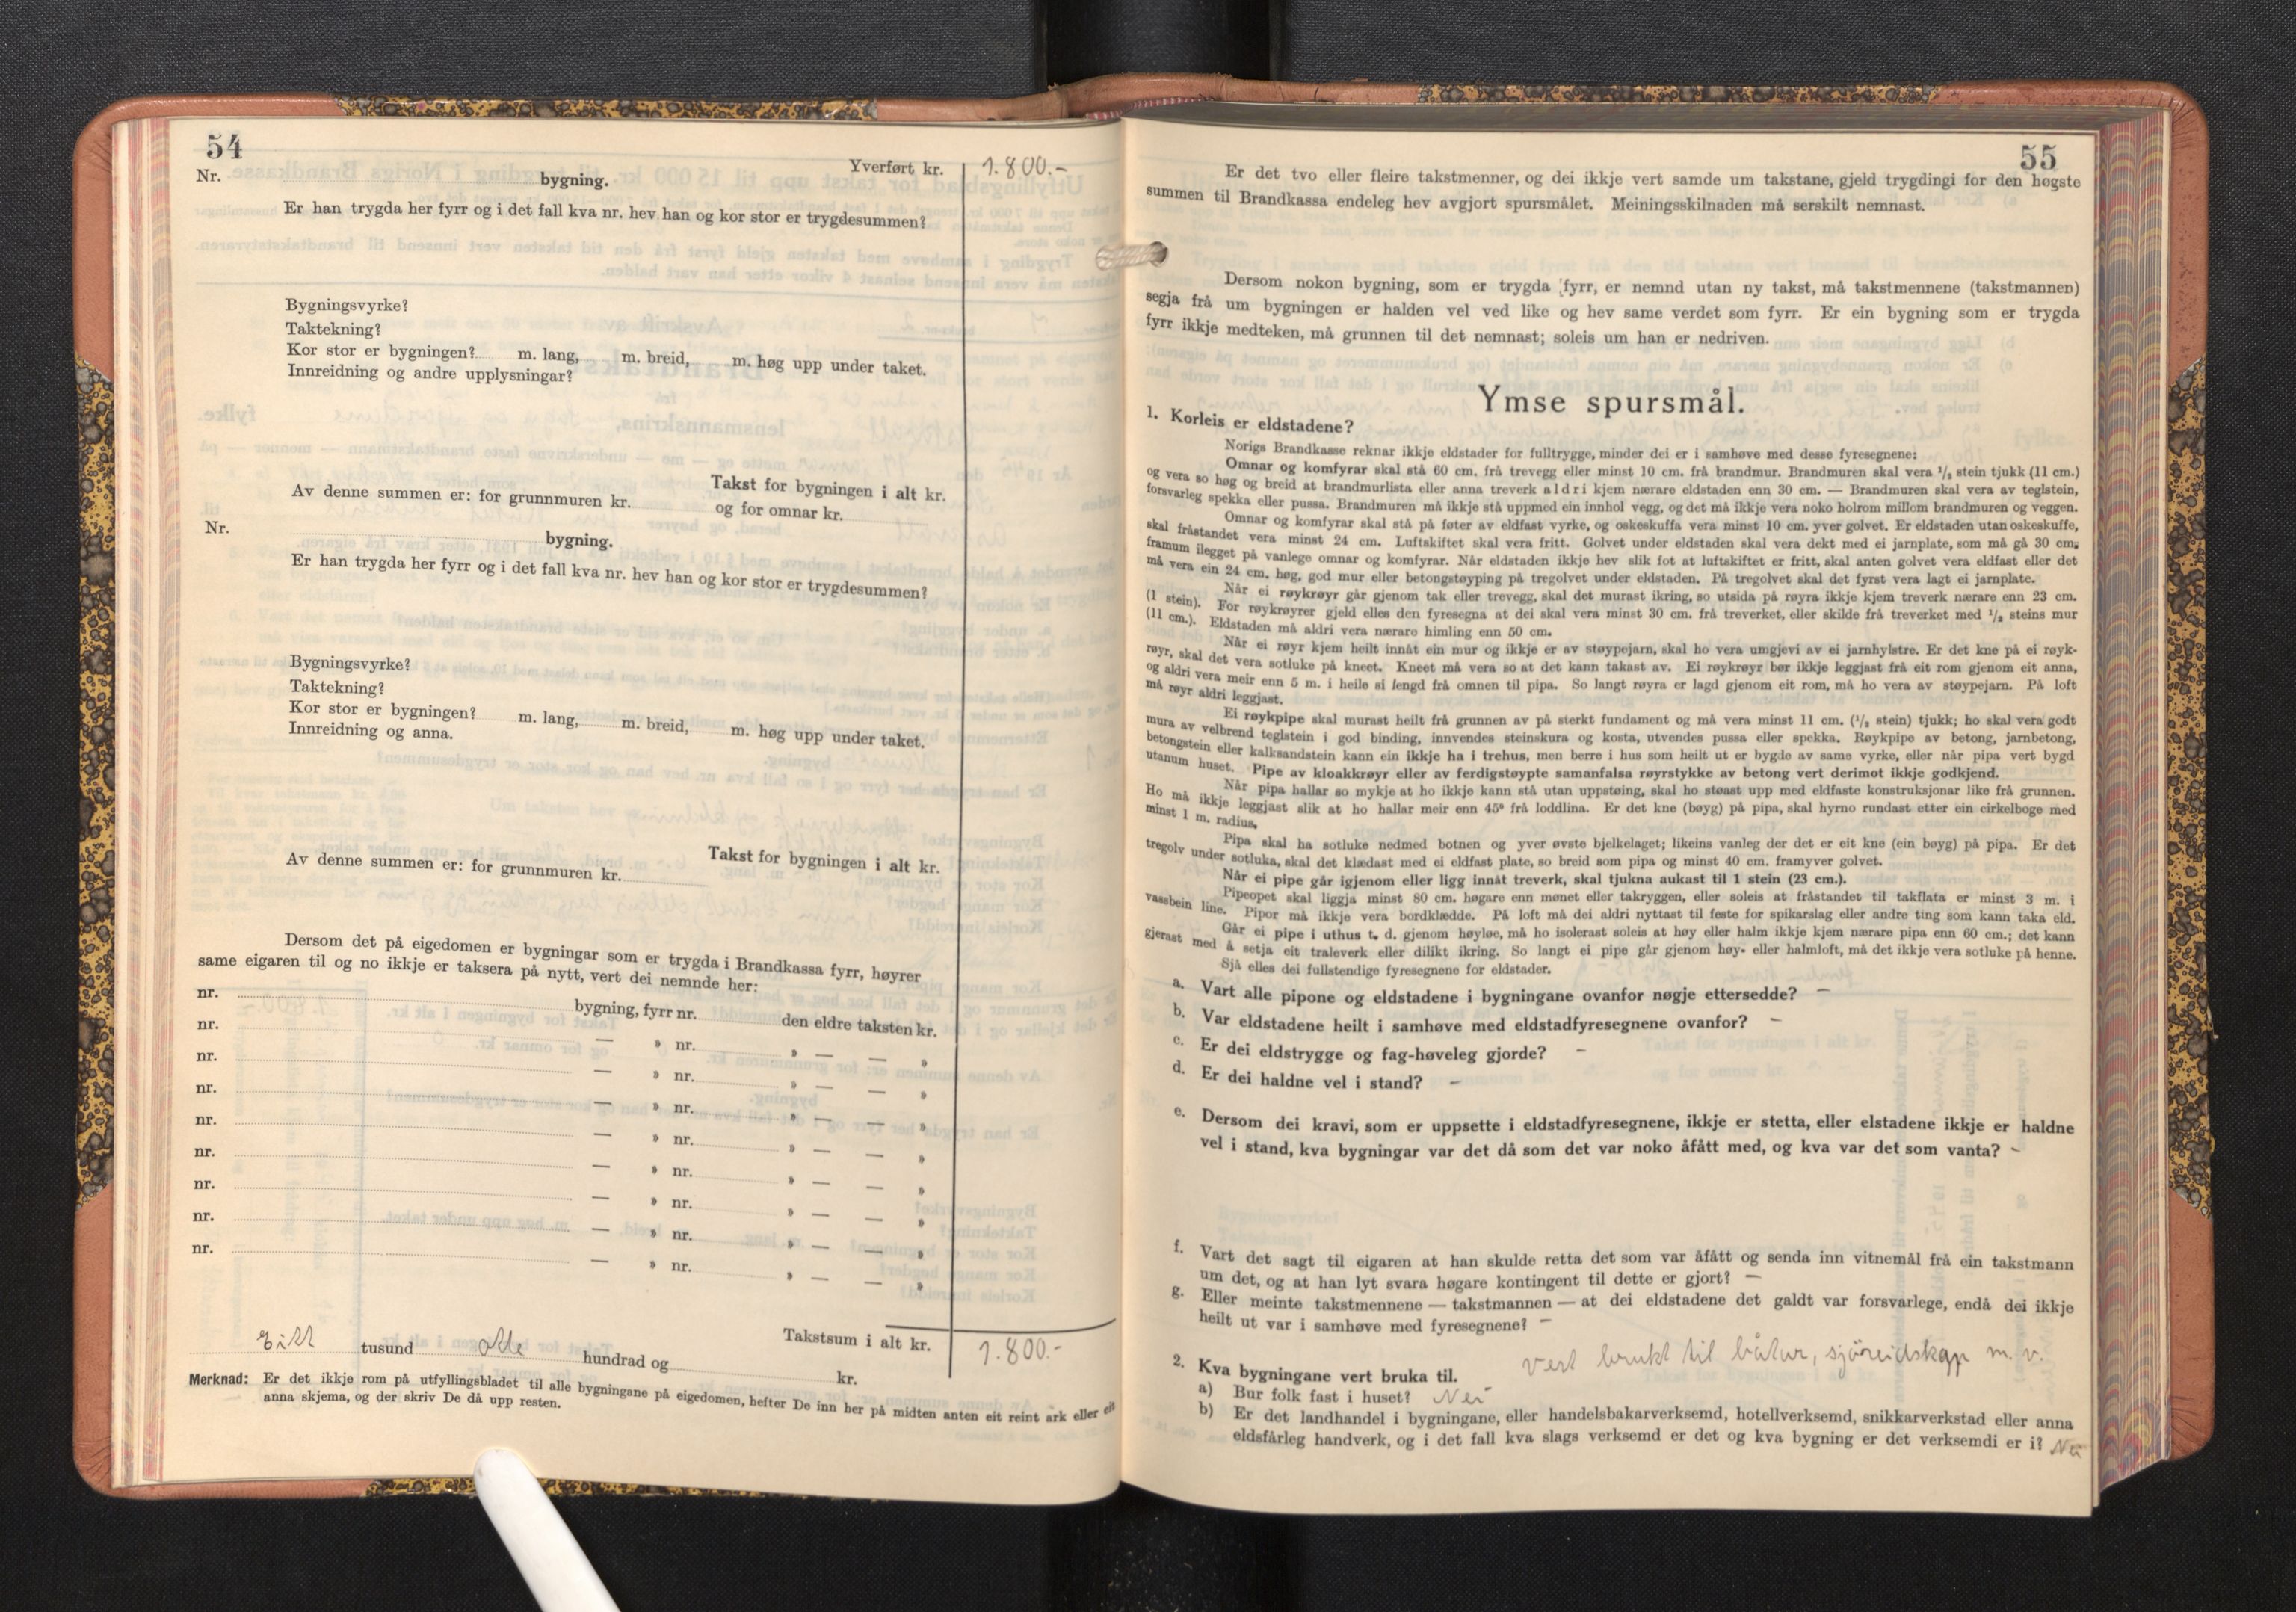 54
Yverført kr. 1.800.-
Nr. bygning.
Er han trygda her fyrr og i det fall kva nr. hev han og kor stor er trygdesummen?
Bygningsvyrke?
Taktekning?
Kor stor er bygningen? m. lang, m. breid, m. høg upp under taket.
Innreidning og andre upplysningar?
Takst for bygningen i alt kr.
Av denne summen er: for grunnmuren kr. og for omnar kr.
Nr. bygning.
Er han trygda her fyrr og i det fall kva nr. hev han og kor stor er trygdesummen?
Bygningsvyrke?
Taktekning?
Kor stor er bygningen? m. lang, m. breid, m. høg upp under taket.
Innreidning og anna.
Takst for bygningen i alt kr.
Av denne summen er: for grunnmuren kr.
Dersom det på eigedomen er bygningar som er trygda i Brandkassa fyrr, høyrer
same eigaren til og no ikkje er taksera på nytt, vert dei nemnde her:
nr. bygning, fyrr nr. den eldre taksten kr.
nr. — » nr. » — — »
nr. — » nr. » — — »
nr. — » nr. » — — »
nr. — » nr. » — — »
nr. — » nr. » — — »
nr. — » nr. » — — »
nr. — » nr. » — — »
nr. — » nr. » — — »
Takstsum i alt kr. 1.800.-
Eitt tusund otte hundrad og kr.
Merknad: Er det ikkje rom på utfyllingsbladet til alle bygningane på eigedomen, hefter De inn her på midten anten eit reint ark eller eit
anna skjema, og der skriv De då upp resten.
55
Er det tvo eller fleire takstmenner, og dei ikkje vert samde um takstane, gjeld trygdingi for den høgste
summen til Brandkassa endeleg hev avgjort spursmålet. Meiningsskilnaden må serskilt nemnast.
Dersom nokon bygning, som er trygda fyrr, er nemnd utan ny takst, må takstmennene (takstmannen)
segja frå um bygningen er halden vel ved like og hev same verdet som fyrr. Er ein bygning som er trygda
fyrr ikkje medteken, må grunnen til det nemnast; soleis um han er nedriven.
Ymse spursmål.
1. Korleis er eldstadene?
Norigs Brandkasse reknar ikkje eldstader for fulltrygge, minder dei er i samhøve med desse fyresegnene:
Omnar og komfyrar skal stå 60 cm. frå trevegg eller minst 10 cm. frå brandmur. Brandmuren skal vera ½ stein tjukk (11 cm.)
og vera so høg og breid at brandmurlista eller anna treverk aldri kjem nærare eldstaden enn 30 cm. — Brandmuren skal vera av teglstein,
forsvarleg spekka eller pussa. Brandmuren må ikkje stå uppmed ein innhol vegg, og det må ikkje vera noko holrom millom brandmuren og veggen.
Omnar og komfyrar skal stå på føter av eldfast vyrke, og oskeskuffa vera minst 10 cm. yver golvet. Er eldstaden utan oskeskuffe,
skal fråstandet vera minst 24 cm. Luftskiftet skal vera fritt. Golvet under eldstaden skal vera dekt med ei jarnplate, som må gå 30 cm.
framum ilegget på vanlege omnar og komfyrar. Når eldstaden ikkje hev slik fot at luftskiftet er fritt, skal anten golvet vera eldfast eller det
må vera ein 24 cm. høg, god mur eller betongstøyping på tregolvet under eldstaden. På tregolvet skal det fyrst vera lagt ei jarnplate.
Når ei røykrøyr går gjenom tak eller trevegg, skal det murast ikring, so utsida på røyra ikkje kjem treverk nærare enn 23 cm.
(1 stein). For røykrøyrer gjeld elles den fyresegna at dei skal vera minst 30 cm. frå treverket, eller skilde frå treverket med ½ steins mur
(11 cm.). Eldstaden må aldri vera nærare himling enn 50 cm.
Når ei røyr kjem heilt innåt ein mur og ikkje er av støypejarn, skal ho vera umgjevi av ei jarnhylstre. Er det kne på ei røyk-
røyr, skal det vera sotluke på kneet. Kneet må vera so at det kann takast av. Ei røykrøyr bør ikkje leggjast frå eit rom gjenom eit anna,
og aldri vera meir enn 5 m. i heile si lengd frå omnen til pipa. So langt røyra er lagd gjenom eit rom, må ho vera av støypejarn. På loft
må røyr aldri leggjast.
Ei røykpipe skal murast heilt frå grunnen av på sterkt fundament og må vera minst 11 cm. (½ stein) tjukk; ho skal vera godt
mura av velbrend teglstein i god binding, innvendes steinskura og kosta, utvendes pussa eller spekka. Røykpipe av betong, jarnbetong,
betongstein eller kalksandstein kann ein ikkje ha i trehus, men berre i hus som heilt ut er bygde av same vyrke, eller når pipa vert bygd
utanum huset. Pipe av kloakkrøyr eller av ferdigstøypte samanfalsa røyrstykke av betong vert derimot ikkje godkjend.
Når pipa hallar so mykje at ho ikkje kann stå utan uppstøing, skal ho støast upp med eldfaste konstruksjonar like frå grunnen.
Ho må ikkje leggjast slik at ho hallar meir enn 45° frå loddlina. Er det kne (bøyg) på pipa, skal hyrno rundast etter ein cirkelboge med
minst 1 m. radius.
Pipa skal ha sotluke nedmed botnen og yver øvste bjelkelaget; likeins vanleg der det er eit kne (ein bøyg) på pipa. Er det
tregolv under sotluka, skal det klædast med ei eldfast plate, so breid som pipa og minst 40 cm. framyver golvet.
Når ei pipe går igjenom eller ligg innåt treverk, skal tjukna aukast til 1 stein (23 cm.).
Pipeopet skal liggja minst 80 cm. høgare enn mønet eller takryggen, eller soleis at fråstandet til takflata er minst 3 m. i
vassbein line. Pipor må ikkje vera bordklædde. På loft må dei aldri nyttast til feste for spikarslag eller andre ting som kann taka eld.
Går ei pipe i uthus t. d. gjenom høyløe, må ho isolerast soleis at høy eller halm ikkje kjem nærare pipa enn 60 cm.; det kann
gjerast med å setja eit traleverk eller dilikt ikring. So langt ei pipe går gjenom høy- eller halmloft, må det ikkje vera sotluke på henne.
Sjå elles dei fullstendige fyresegnene for eldstader.
a. Vart alle pipone og eldstadene i bygningane ovanfor nøgje ettersedde? —
b. Var eldstadene heilt i samhøve med eldstadfyresegnene ovanfor? —
c. Er dei eldstrygge og fag-høveleg gjorde? —
d. Er dei haldne vel i stand? —
e. Dersom dei kravi, som er uppsette i eldstadfyresegnene, ikkje er stetta, eller elstadene ikkje er haldne
vel i stand, kva bygningar var det då som det var noko åfått med, og kva var det som vanta? -
f. Vart det sagt til eigaren at han skulde retta det som var åfått og senda inn vitnemål frå ein takstmann
um det, og at han lyt svara høgare kontingent til dette er gjort? —
g. Eller meinte takstmennene — takstmannen — at dei eldstadene det galdt var forsvarlege, endå dei ikkje
heilt ut var i samhøve med fyresegnene? —
2. Kva bygningane vert bruka til. Vert brukt til båtar, sjöreidskap m. v.
a) Bur folk fast i huset? Nei
b) Er det landhandel i bygningane, eller handelsbakarverksemd, hotellverksemd, snikkarverkstad eller anna
eldsfårleg handverk, og i det fall kva slags verksemd er det og kva bygning er det verksemdi er i? Nei